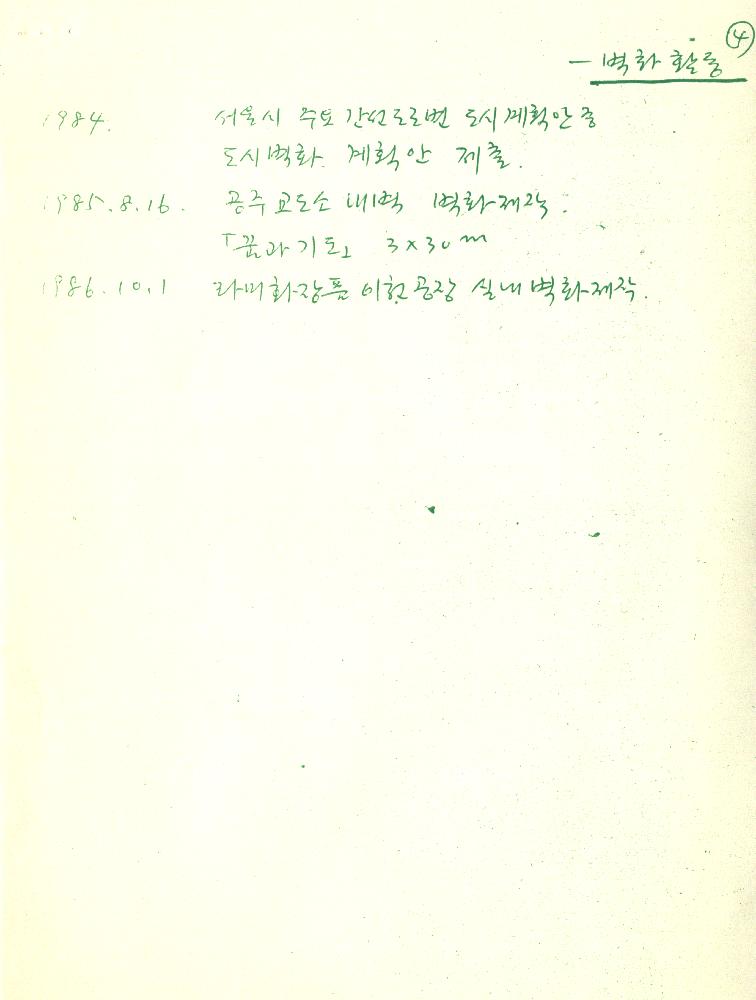 ④
— 벽화 활동
1984. 서울시 주요 간선도로변 도시계획안 중
도시벽화 계획안 제출.
1985.8.16. 공주교도소 내벽 벽화제작.
「꿈과 기도」 3×30m
1986.10.1 라미화장품 이천공장 실내벽화제작.